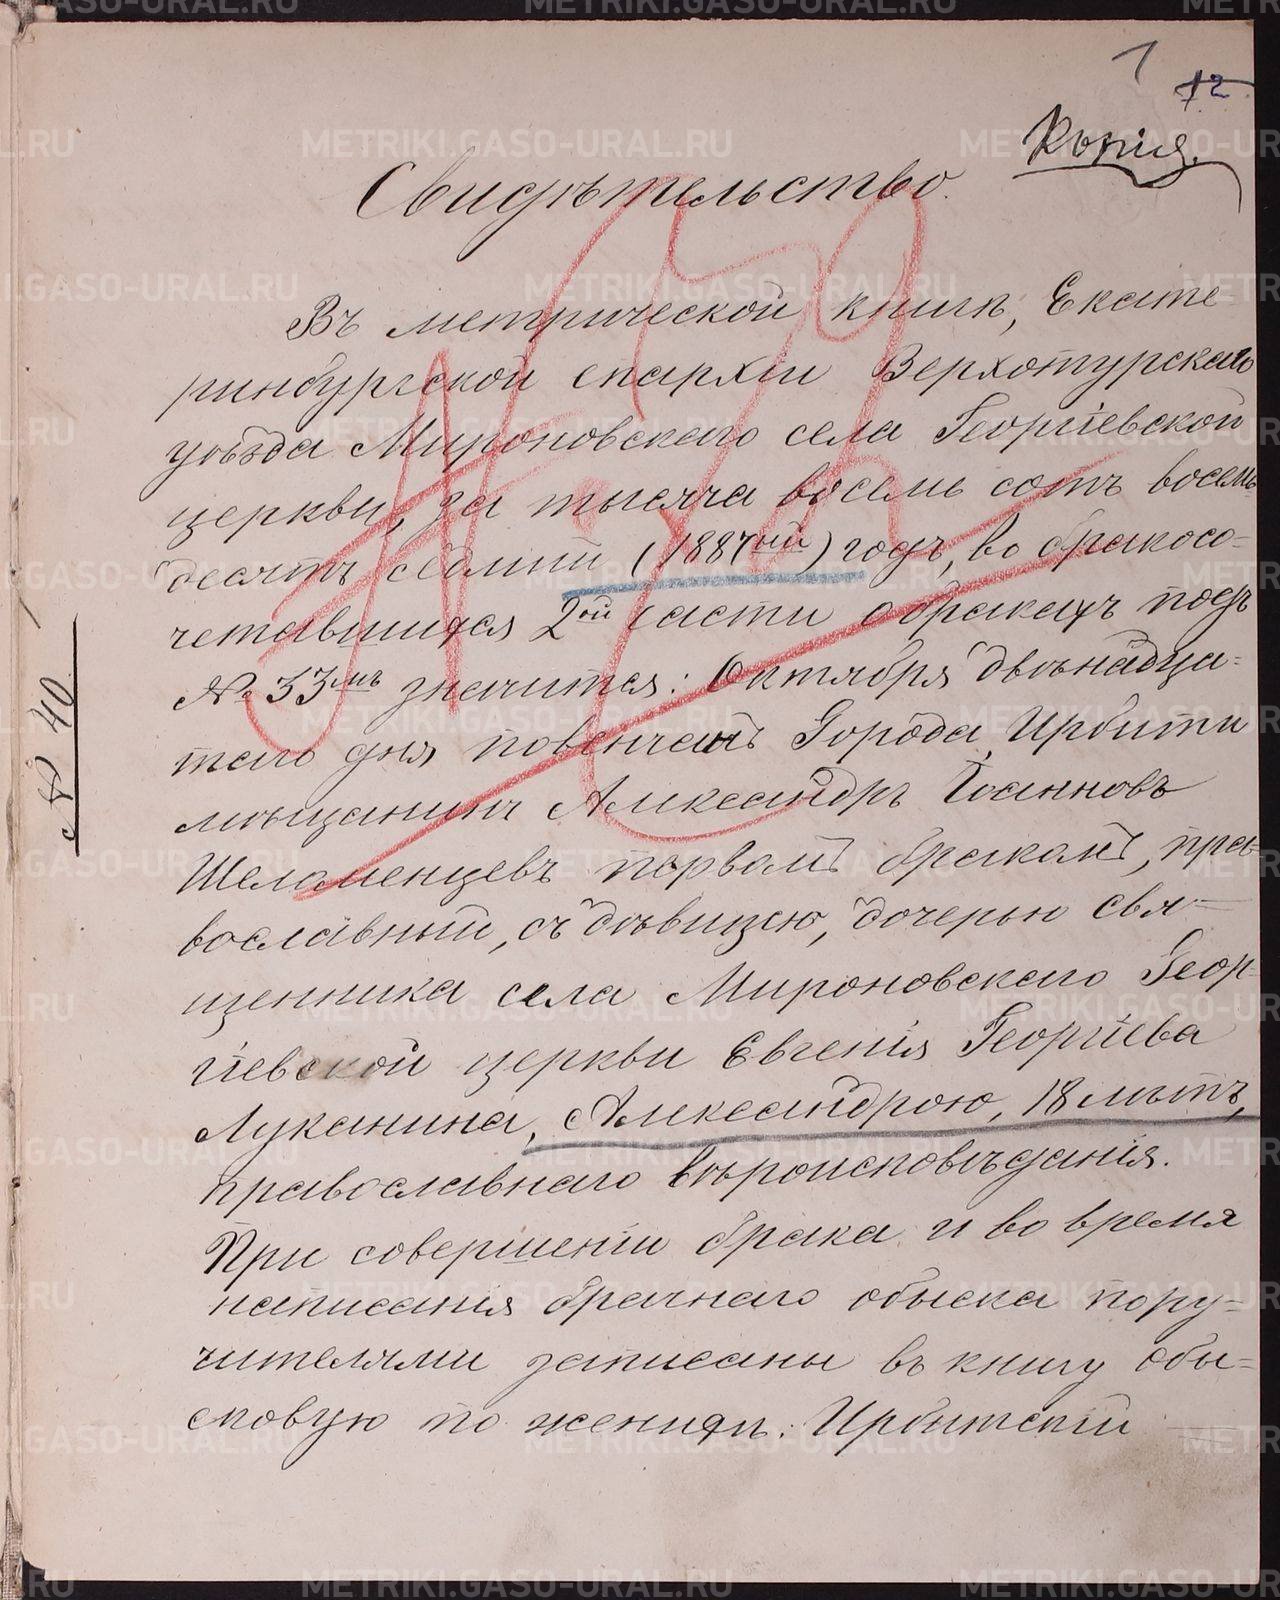 1
12
Копія.
Свидѣтельство.
Въ метрической книгѣ, Екате
ринбургской епархіи Верхотурскаго
уѣзда Мироновскаго села Георгіевской
церкви, за тысяча восемь сотъ восемь
десятъ седмый (1887ый) годъ, во бракосо-
четавшихся 2ой части о бракахъ подъ
№ 33мъ значится: Октября двѣнадца-
таго дня повенчанъ Города Ирбити
мѣщанинъ Александръ Іоанновъ
Шеламенцевъ первымъ бракомъ, пра-
вославный, съ дѣвицею, дочерью свя-
щенника села Мироновскаго Геор-
гіевской церкви Евгенія Георгіева
Луканина, Александрою, 18 лѣтъ,
православнаго вѣроисповѣданія.
При совершеніи брака и во время
написанія брачнаго обыска пору-
чителями записаны въ книгу обы-
сковую по женихѣ: Ирбитскій
№ 40
METRIKI.GASO-URAL.RU